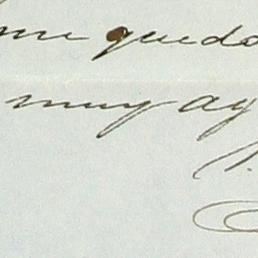 me quedo
muy ag